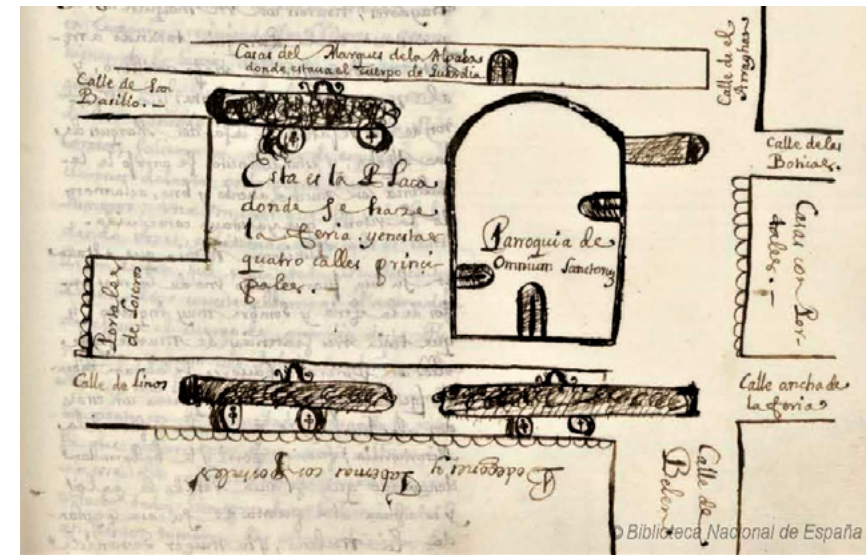 Casas del Marques de la Algaba
donde estaua el cuerpo de Guardia
Calle de San
Basilio. —
Calle de el
Calle de las
Boticas.
Esta es la Plaça
donde se haze
la feria, y en estas
quatro calles princi-
pales. —
Parroquia de
Omnium Sanctorum
Casas con Por-
tales. —
Portales
de Loseros
Calle de Linos
Calle ancha de
la feria
Bodegones y Tabernas con portales
Calle de
Belen
© Biblioteca Nacional de España